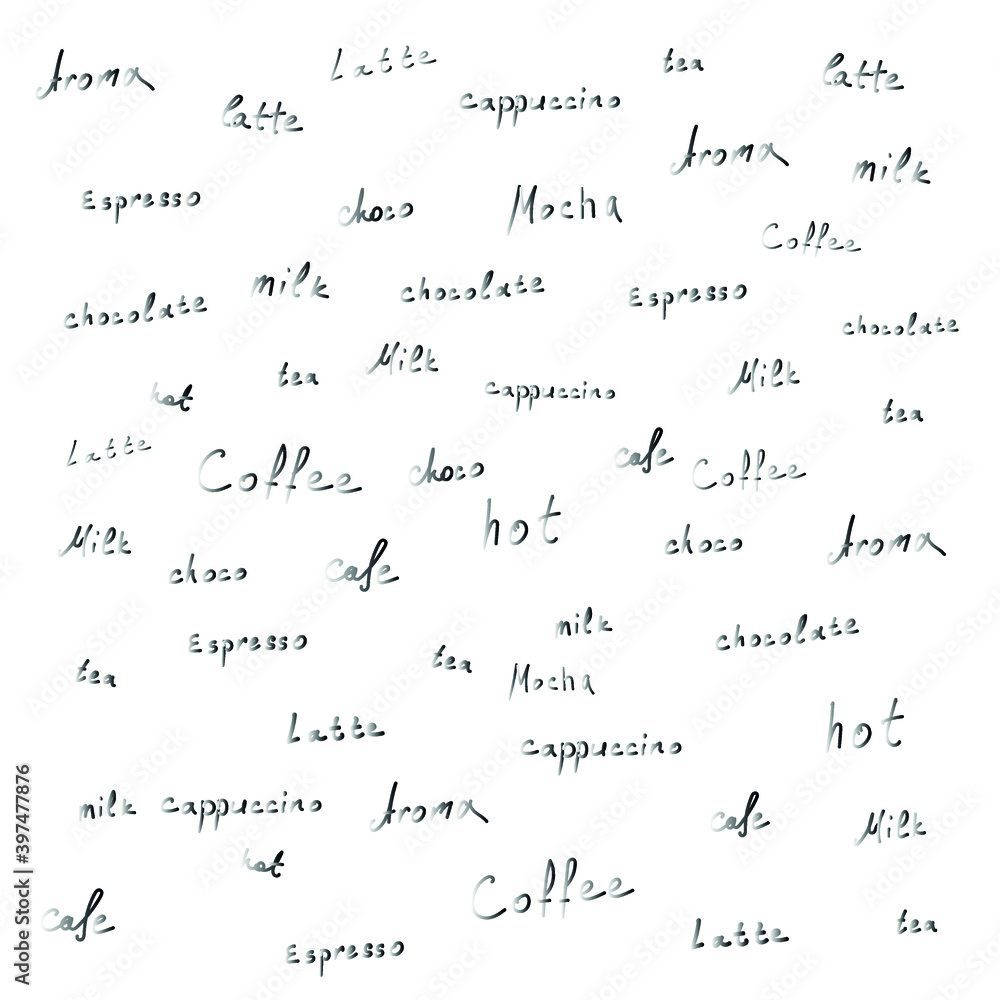 Aroma
Latte
tea
latte
latte
cappuccino
Aroma
milk
Espresso
choco
Mocha
Coffee
chocolate
milk
chocolate
Espresso
chocolate
hot
tea
Milk
cappuccino
Milk
tea
Latte
Coffee
choco
cafe
Coffee
Milk
choco
cafe
hot
choco
Aroma
Espresso
milk
chocolate
tea
tea
Mocha
Latte
cappuccino
hot
milk
cappuccino
Aroma
cafe
Milk
hot
Coffee
cafe
Espresso
Latte
tea
Adobe Stock | #397477876